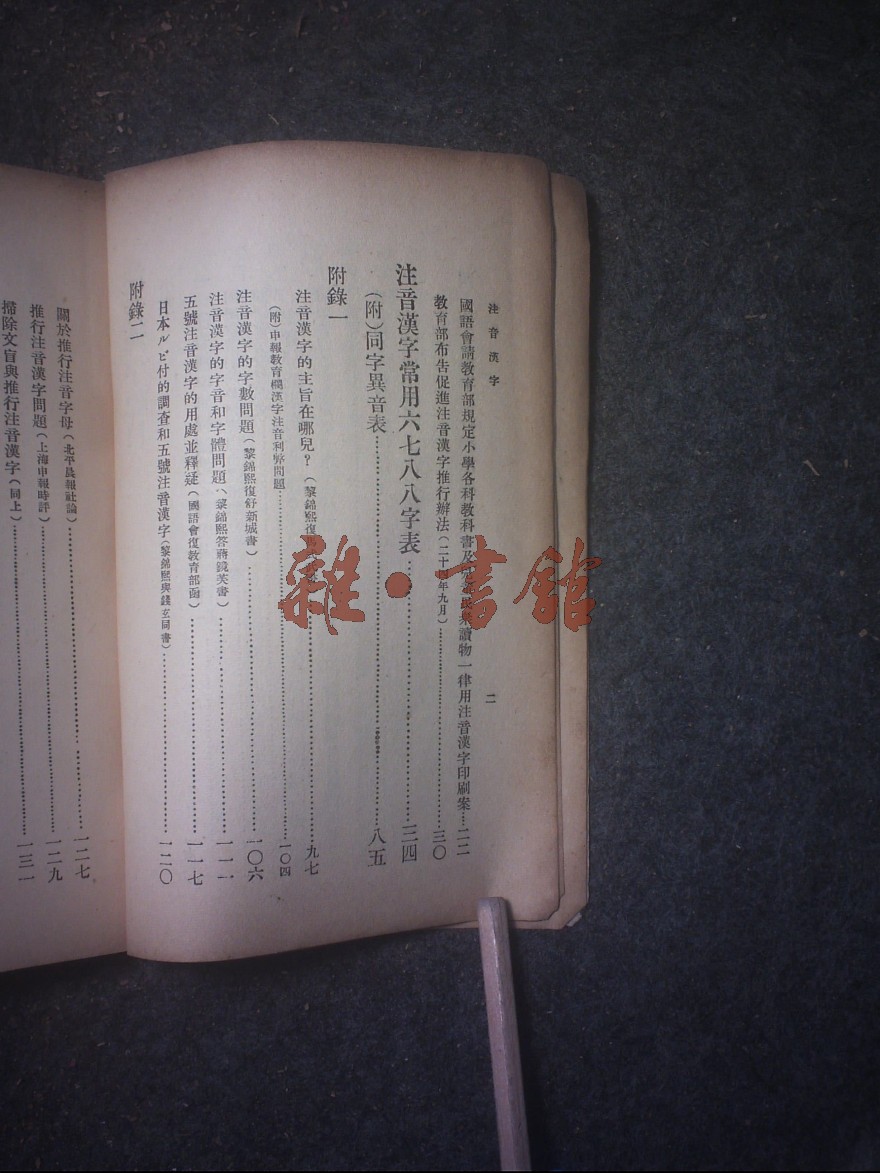 注音漢字
二
國語會請教育部規定小學各科教科書及讀物一律用注音漢字印刷案……二二
教育部布告促進注音漢字推行辦法(二十四年九月)……三〇
注音漢字常用六七八八字表……三四
(附)同字異音表……八五
附錄一
注音漢字的主旨在哪兒?(黎錦熙復……九七
(附)申報教育欄漢字注音利弊問題……一〇四
注音漢字的字數問題(黎錦熙復舒新城書)……一〇六
注音漢字的字音和字體問題(黎錦熙答蔣鏡芙書)……一一一
五號注音漢字的用處並釋疑(國語會復教育部函)……一一七
日本ルビ付的調查和五號注音漢字(黎錦熙與錢玄同書)……一二〇
附錄二
關於推行注音字母(北平晨報社論)……一二七
推行注音漢字問題(上海申報時評)……一二九
掃除文盲與推行注音漢字(同上)……一三一
雜·書館